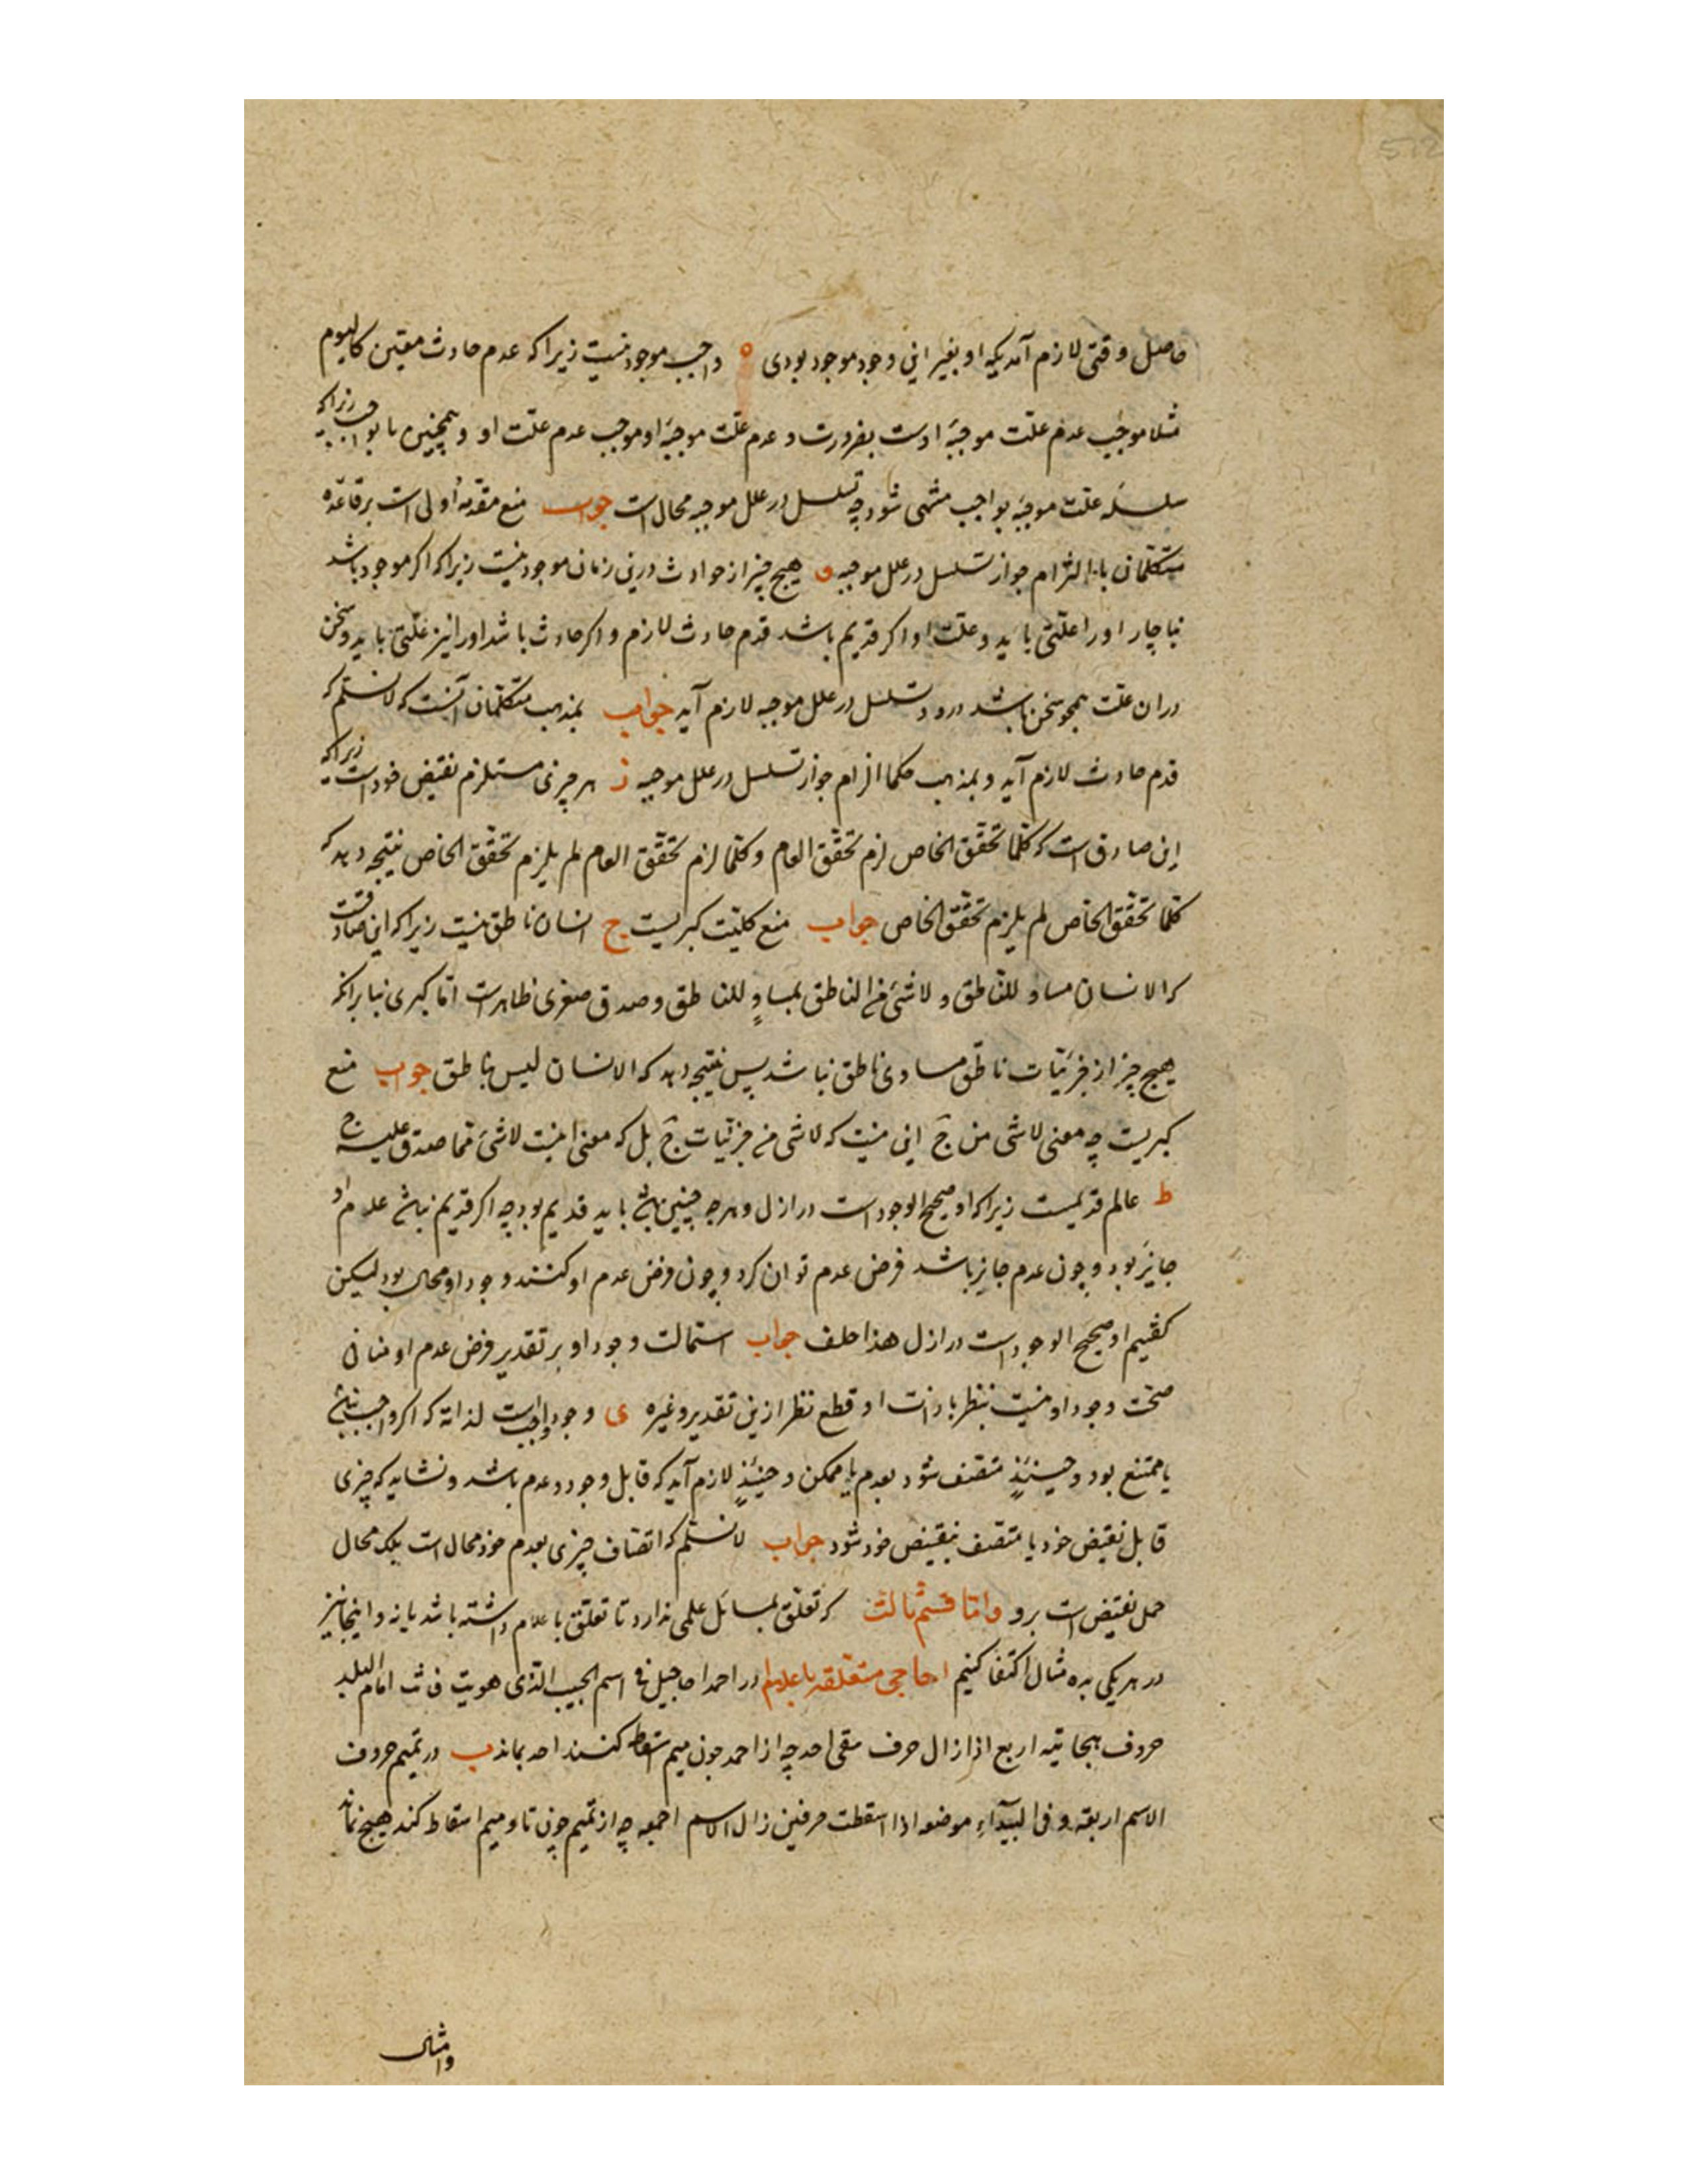 حاصل وقتی لازم آمدیکه او بغیر این وجود موجود بودی ه واجب موجود نیست زیرا که عدم حادث معین کالیوم
مثلا موجب عدم علت موجبهٔ اوست بضرورت و عدم علت موجبهٔ او موجب عدم علت او و همچنین تا بواجب زیرا که
سلسلهٔ علت موجبه بواجب منتهی شود چه تسلسل در علل موجبه محال است جواب منع مقدمهٔ اولی است بر قاعدهٔ
متکلمان یا التزام جواز تسلسل در علل موجبه و هیچ چیز از حوادث درین زمان موجود نیست زیرا که اکر موجود باشد
ناچار او را علتی باید و علت او اکر قدیم باشد قدم حادث لازم و اکر حادث باشد او را نیز علتی باید و سخن
در ان علت همچو سخن باشد درو و تسلسل در علل موجبه لازم آید جواب بمذهب متکلمان آنست که لا نسلم که
قدم حادث لازم آید و بمذهب حکما الزام جواز تسلسل در علل موجبه ز هر چیزی مستلزم نقیض خود است زیرا که
این صادق است که کلما تحقق الخاص لزم تحقق العام و کلما لزم تحقق العام لم یلزم تحقق الخاص نتیجه دهد که
کلما تحقق الخاص لم یلزم تحقق الخاص جواب منع کلیت کبریست ح انسان ناطق نیست زیرا که این صادقست
که الانسان مساو للناطق و لا شئ من الناطق بمساوٍ للناطق و صدق صغری ظاهرست اما کبری بنا برانکه
هیچ چیز از جزئیات ناطق مساوی ناطق نباشد پس نتیجه دهد که الانسان لیس بناطق جواب منع
کبریست چه معنی لا شی من ج این نیست که لا شی من جزئیات ج بل که معنی اینست لا شئ مما صدق علیه ج
ط عالم قدیمست زیرا که او صحیح الوجود است در ازل و هر چه چنین باشد باید قدیم بود چه اکر قدیم نباشد عدم او
جایز بود و چون عدم جایز باشد فرض عدم توان کرد و چون فرض عدم او کنند وجود او محال بود لیکن
کفتیم او صحیح الوجود است در ازل هذا خلف جواب استحالت وجود او بر تقدیر فرض عدم او منافی
صحت وجود او نیست بنظر با ذات او قطع نظر ازین تقدیر و غیره ی وجود واجبست لذاته که اکر واجب نباشد
یا ممتنع بود و حینئذٍ متصف شود بعدم یا ممکن و حینئذٍ لازم آید که قابل وجود و عدم باشد و نشاید که چیزی
قابل نقیض خود یا متصف بنقیض خود شود جواب لا نسلم که اتصاف چیزی بعدم خود محال است بلکه محال
حمل نقیض است برو واما قسم ثالث که تعلق بمسائل علمی ندارد تا تعلق با علام داشته باشد یا نه و اینجا نیز
در هر یکی بده مثال اکتفا کنیم احاجی متعلقه با علام ا در احمد احاجیک فی اسم الحبیب الذی هویت فی امام البلد
حروف هجائیه اربع اذا زال حرف بقی احد چه از احمد چون میم اسقاط کنند احد بماند ب در تمیم حروف
الاسم اربعة و فی البیداء موضعه اذا اسقطت حرفین زال الاسم اجمعه چه از تمیم چون تا و میم اسقاط کند هیچ نماند
وامثال